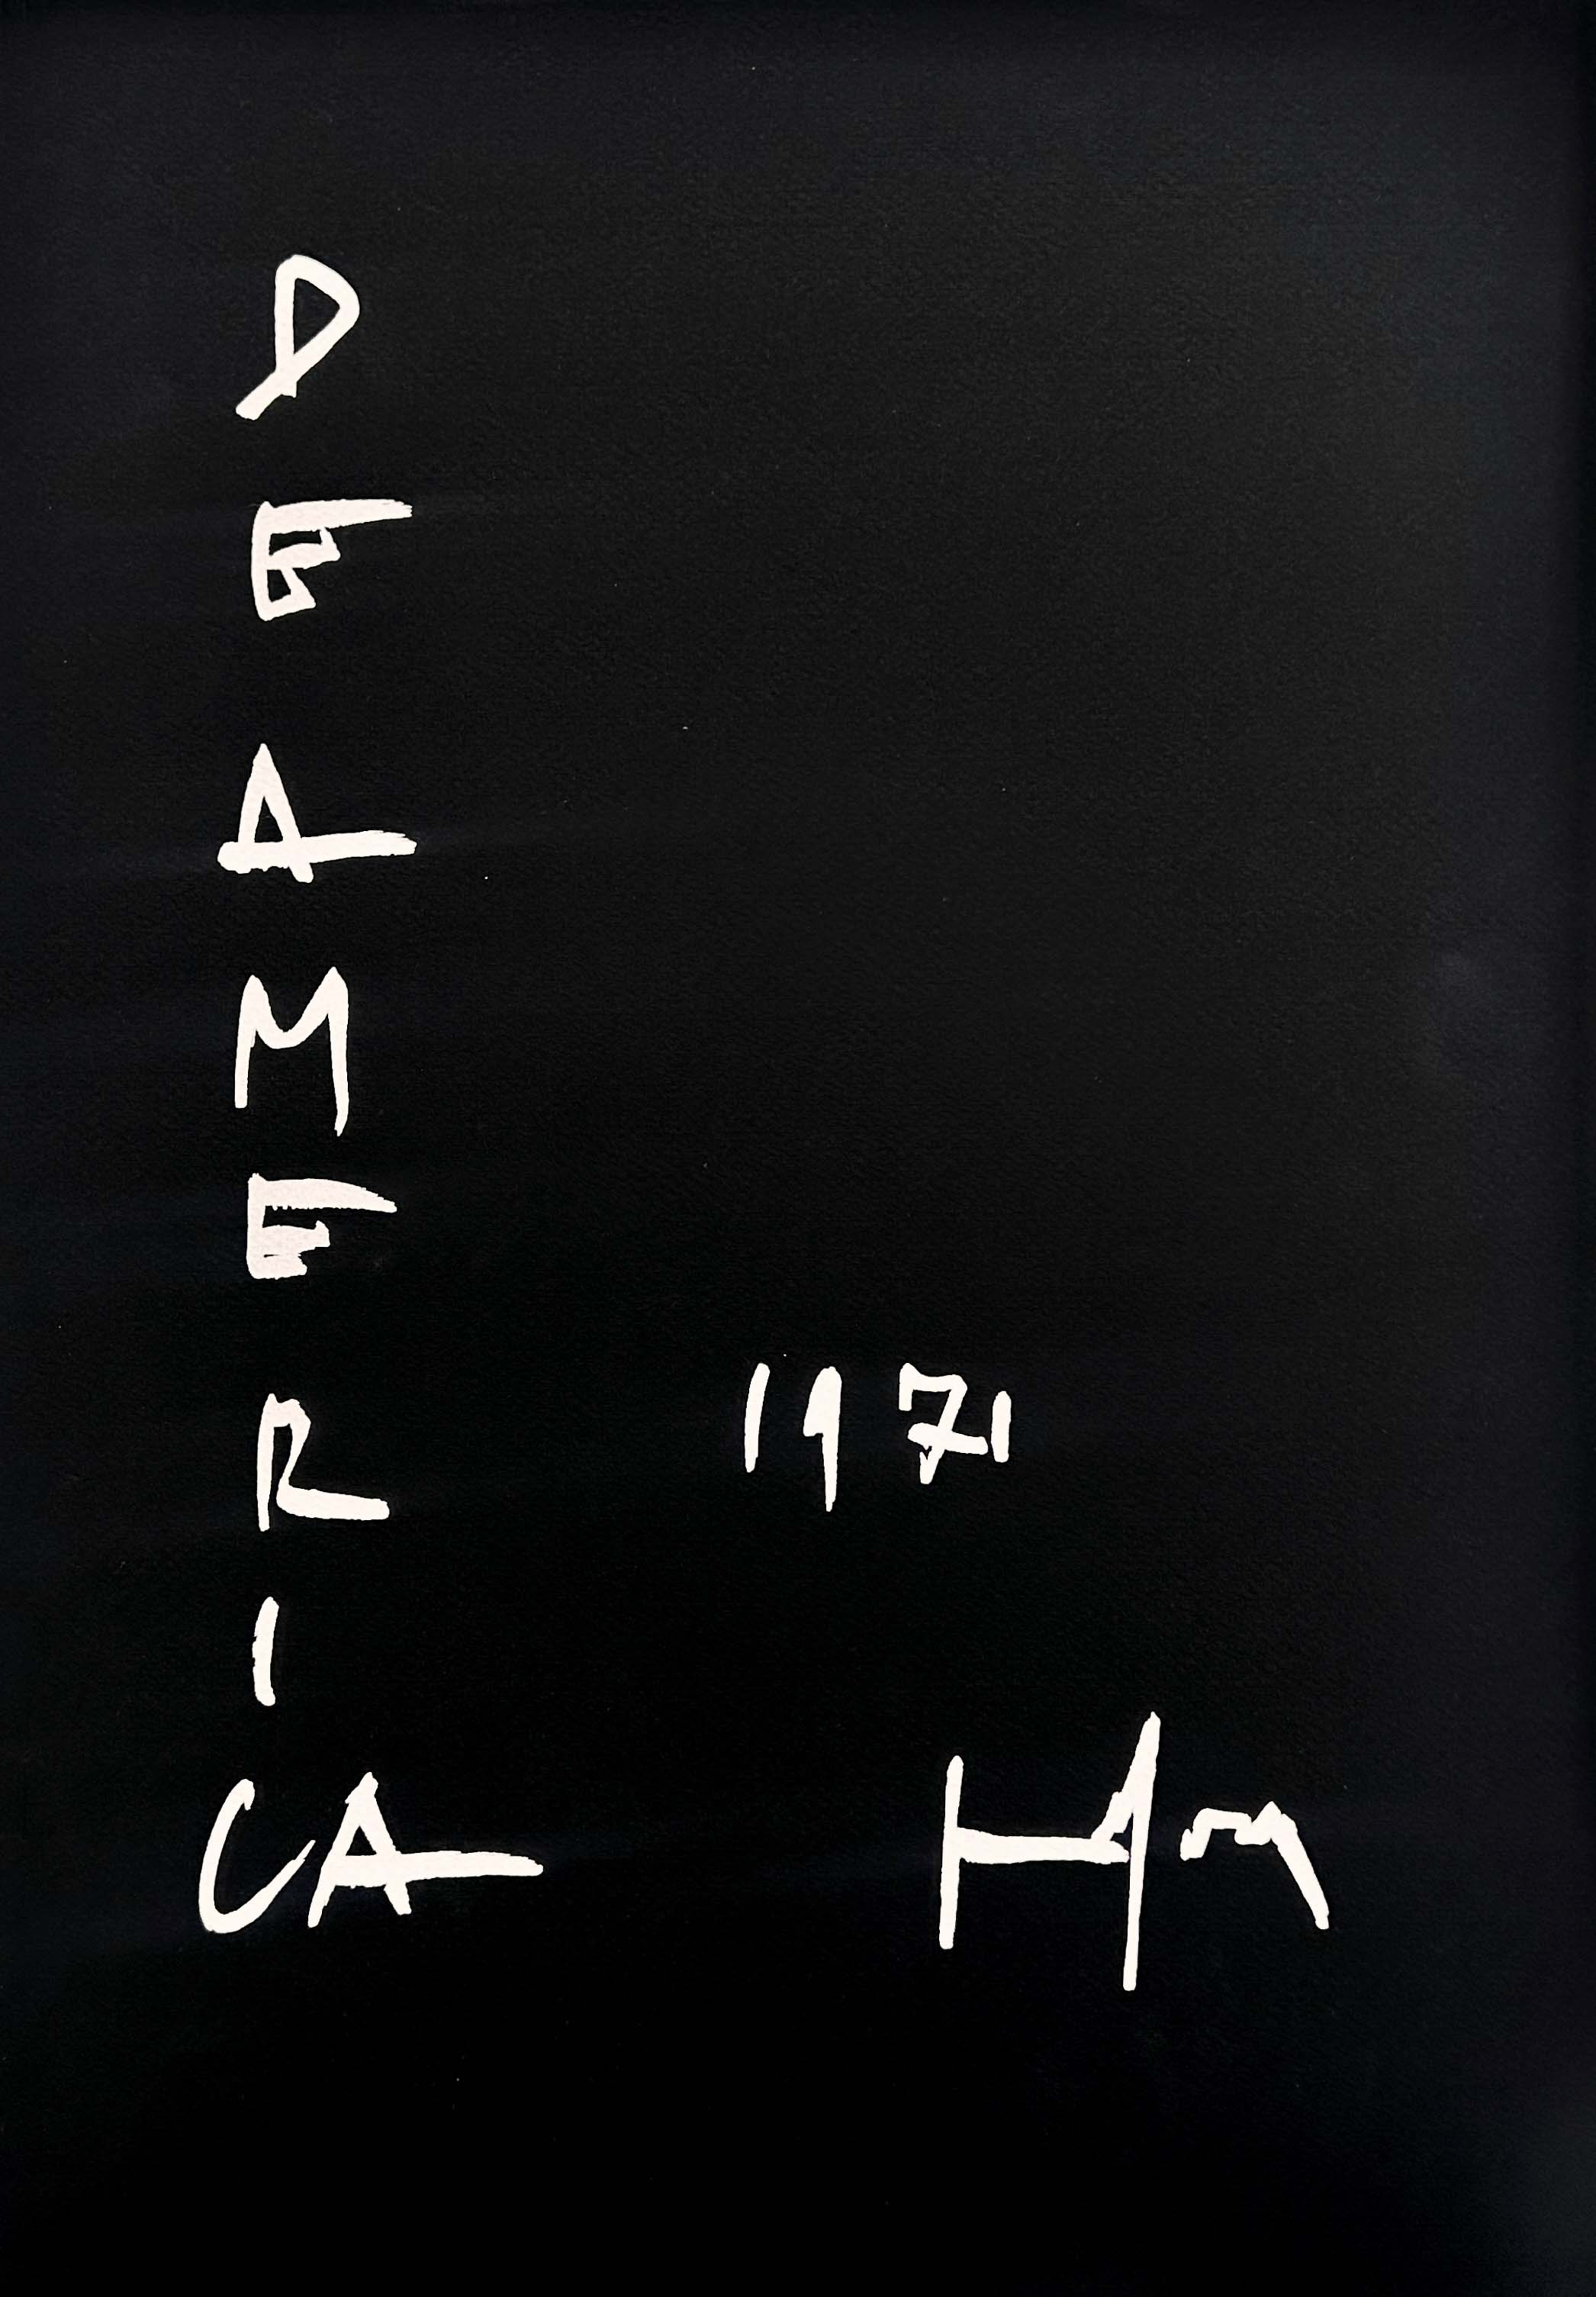 D
E
A
M
E
R
I
CA
1971
Hoy